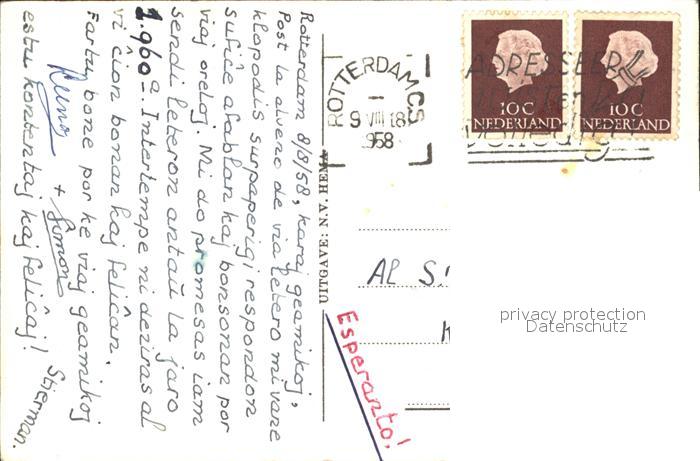 Rotterdam 8/8/58, karaj geamikoj,
Post la alveno de via letero mi vane
klopodis surpaperigi respondon
sufiĉe afablan kaj bonsonan por
viaj oreloj. Mi do promesas iam
sendi leteron antaŭ la jaro
1.960a. Intertempe ni deziras al
vi ĉion bonan kaj feliĉan.
Fartu bone por ke viaj geamikoj
estu kontentaj kaj feliĉaj!
+ Simone
Stierman.
UITGAVE: N.V. HEMA
Esperanto!
ROTTERDAM C.S.
9 VIII 18
1958
ADRESSEER
10 C
NEDERLAND
10 C
NEDERLAND
Al S
K
privacy protection
Datenschutz